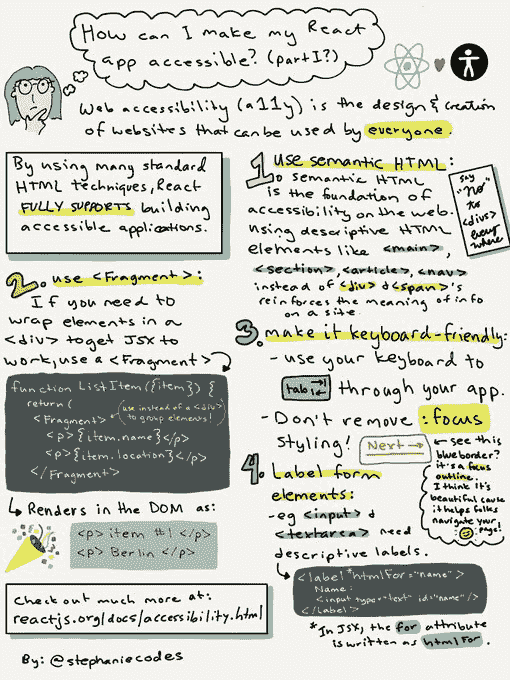 How can I make my React
app accessible? (part I?)
Web accessibility (a11y) is the design & creation
of websites that can be used by everyone.
By using many standard
HTML techniques, React
FULLY SUPPORTS building
accessible applications.
1. use semantic HTML:
semantic HTML
is the foundation of
accessibility on the web.
using descriptive HTML
elements like <main>,
<section>, <article>, <nav>
instead of <div> & <span>'s
reinforces the meaning of info
on a site.
say
"no"
to
<div>
every
where
2. use <Fragment>:
If you need to
wrap elements in a
<div> to get JSX to
work, use a <Fragment>
function ListItem({item}) {
return (
<Fragment> (use instead of a <div>
to group elements!)
<p> {item.name}</p>
<p> {item.location}</p>
</Fragment>
Renders in the DOM as:
<p> item #1 </p>
<p> Berlin </p>
3. make it keyboard-friendly:
- use your keyboard to
tab through your app.
- Don't remove :focus
styling! Next →
← see this
blue border?
it's a focus
outline.
I think it's
beautiful cause
it helps folks
navigate your
page!
4. Label form
elements:
- eg <input> &
<textarea> need
descriptive labels.
<label *htmlFor="name">
Name:
<input type="text" id="name"/>
</label>
*In JSX, the for attribute
is written as htmlFor.
Check out much more at:
reactjs.org/docs/accessibility.html
By: @stephaniecodes